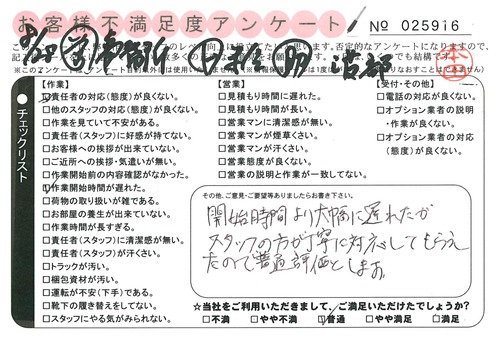 お客様不満足度アンケート
No 025916
※このアンケートは
チェックリスト
【作業】
☑責任者の対応(態度)が良くない。
□他のスタッフの対応(態度)が良くない。
□作業を見ていて不安がある。
□責任者(スタッフ)に好感が持てない。
□お客様への挨拶が出来ていない。
□ご近所への挨拶・気遣いが無い。
□作業開始前の内容確認がなかった。
☑作業開始時間が遅れた。
□荷物の取り扱いが雑である。
□お部屋の養生が出来ていない。
□作業時間が長すぎる。
□責任者(スタッフ)に清潔感が無い。
□責任者(スタッフ)が汗くさい。
□トラックが汚い。
□梱包資材が汚い。
□運転が不安(下手)である。
□靴下の履き替えをしてない。
□スタッフにやる気がみられない。
【営業】
□見積もり時間に遅れた。
□見積もり時間が長い。
□営業マンに清潔感が無い。
□営業マンが煙草くさい。
□営業マンが汗くさい。
□営業態度が良くない。
□営業の説明と作業が一致してない。
【受付・その他】
□電話の対応が良くない。
□オプション業者の説明
・作業が良くない。
□オプション業者の対応
(態度)が良くない。
その他、ご意見・ご要望等ありましたらお書き下さい。
開始時間より大幅に遅れたが
スタッフの方が丁寧に対応してもらえ
たので普通評価とします。
☆当社をご利用いただきまして、ご満足いただけたでしょうか?
□不満 □やや不満 ☑普通 □やや満足 □満足